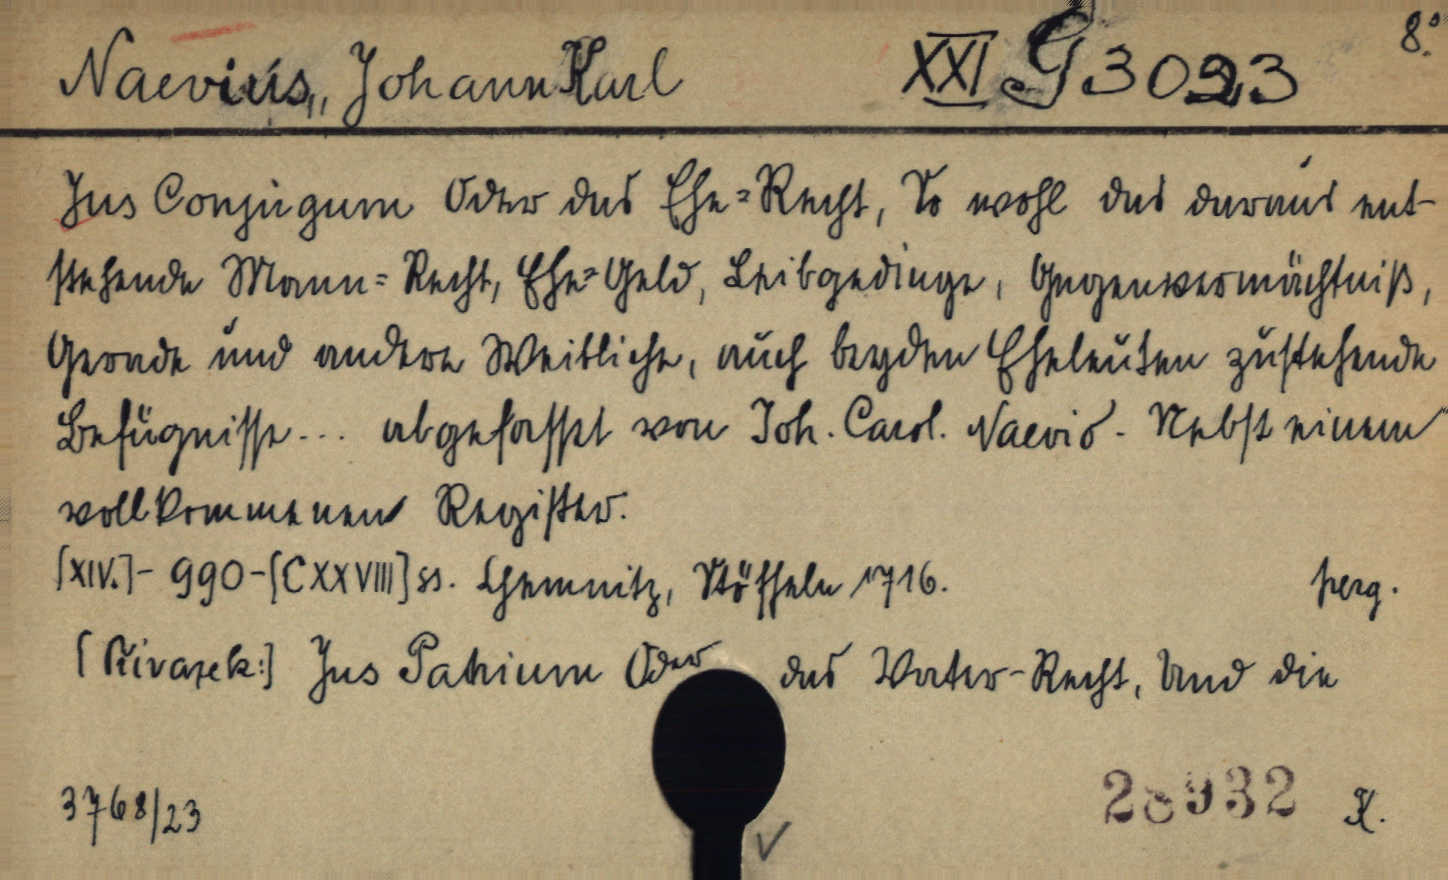 Naevius, Johann Karl XXI G 3023 8°
Jus Conjugum Oder das Ehe=Recht, So wohl das daraus ent-
stehende Mann=Recht, Ehe=Geld, Leibgedinge, Gegenvermächtniß,
Gerade und andere Weibliche, auch beyden Eheleuten zustehende
Befugnisse... abgefasset von Joh. Carol. Naevio. Nebst einem
vollkommenen Register.
[XIV.]- 990-[CXXVIII] ss. Chemnitz, Stößeln 1716. perg.
[Přívazek:] Jus Patrium Oder das Vater-Recht, Und die
3768/23 28932 K.